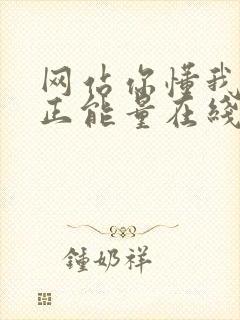 网站你懂我
正能量在线
鍾奶祥